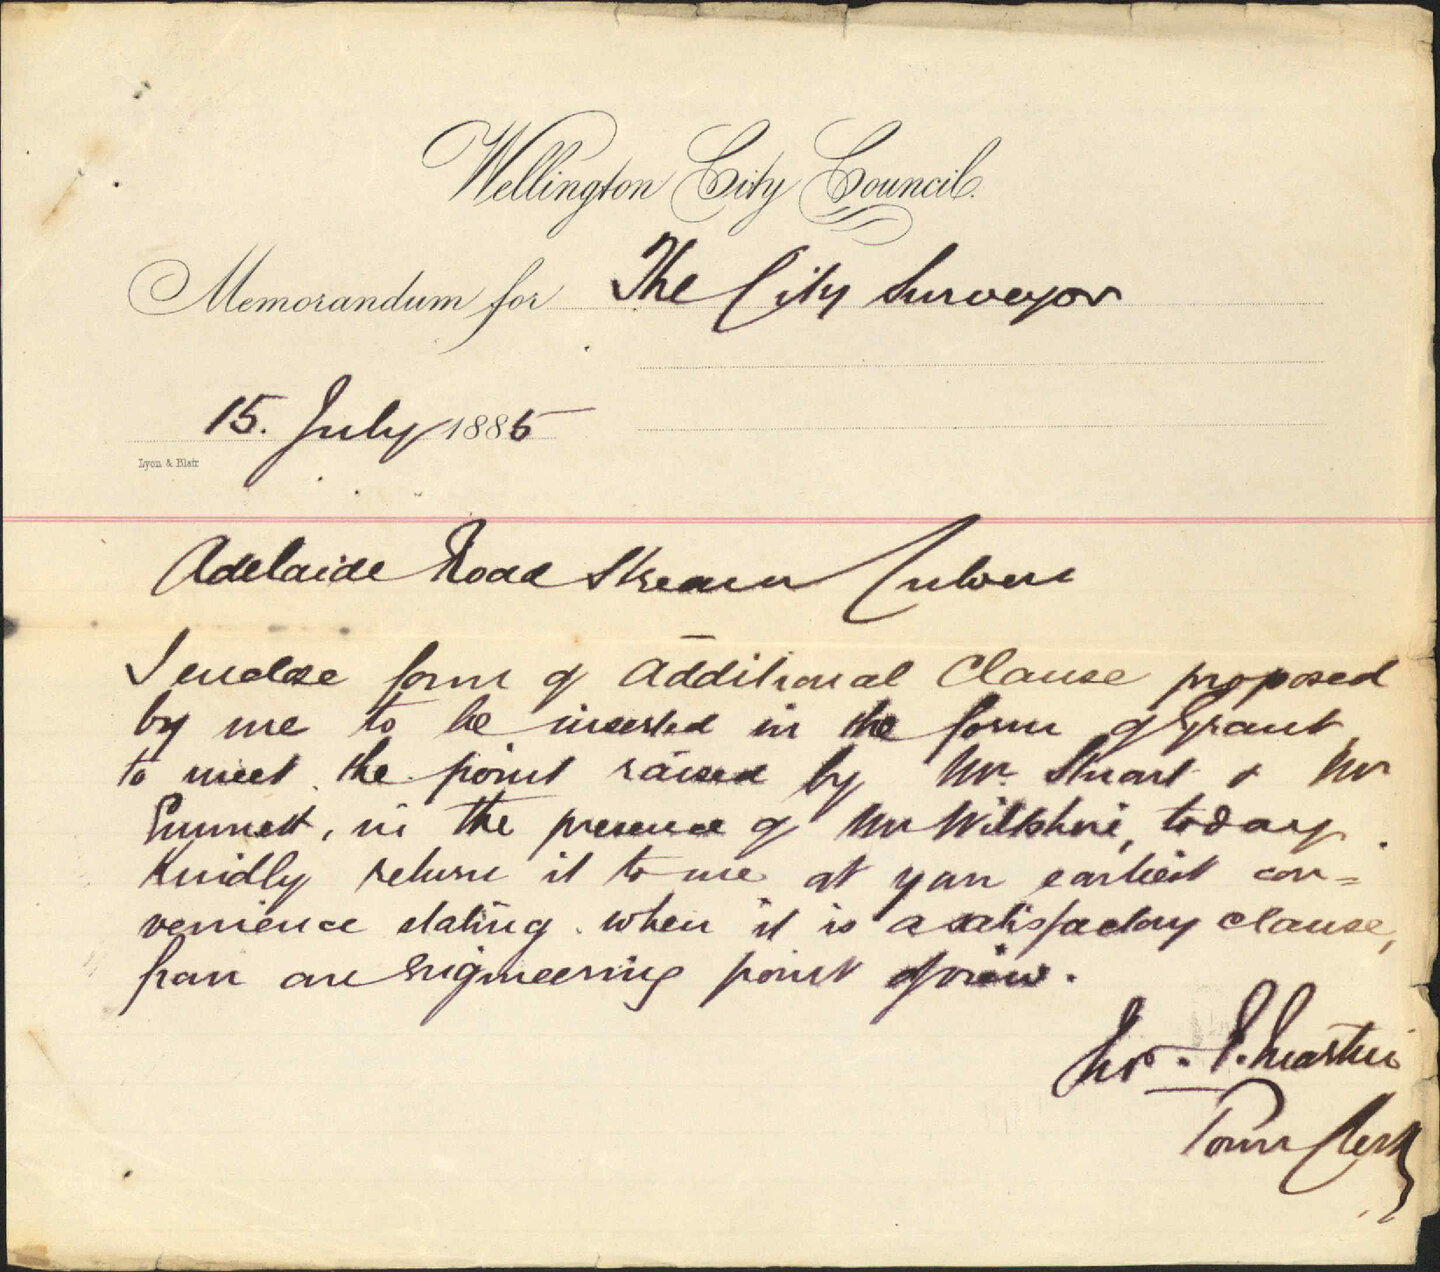 Wellington City Council.
Memorandum for The City Surveyor
15. July 1885
Lyon & Blair
Adelaide Road Stream Culvert
I enclose form of additional Clause proposed
by me to be inserted in the form of Grant
to meet the point raised by Mr. Stuart & Mr
Emmett, in the presence of Mr Wiltshire, today.
Kindly return it to me at your earliest con=
venience stating when it is a satisfactory clause,
from an engineering point of view.
Martin
Town Clerk